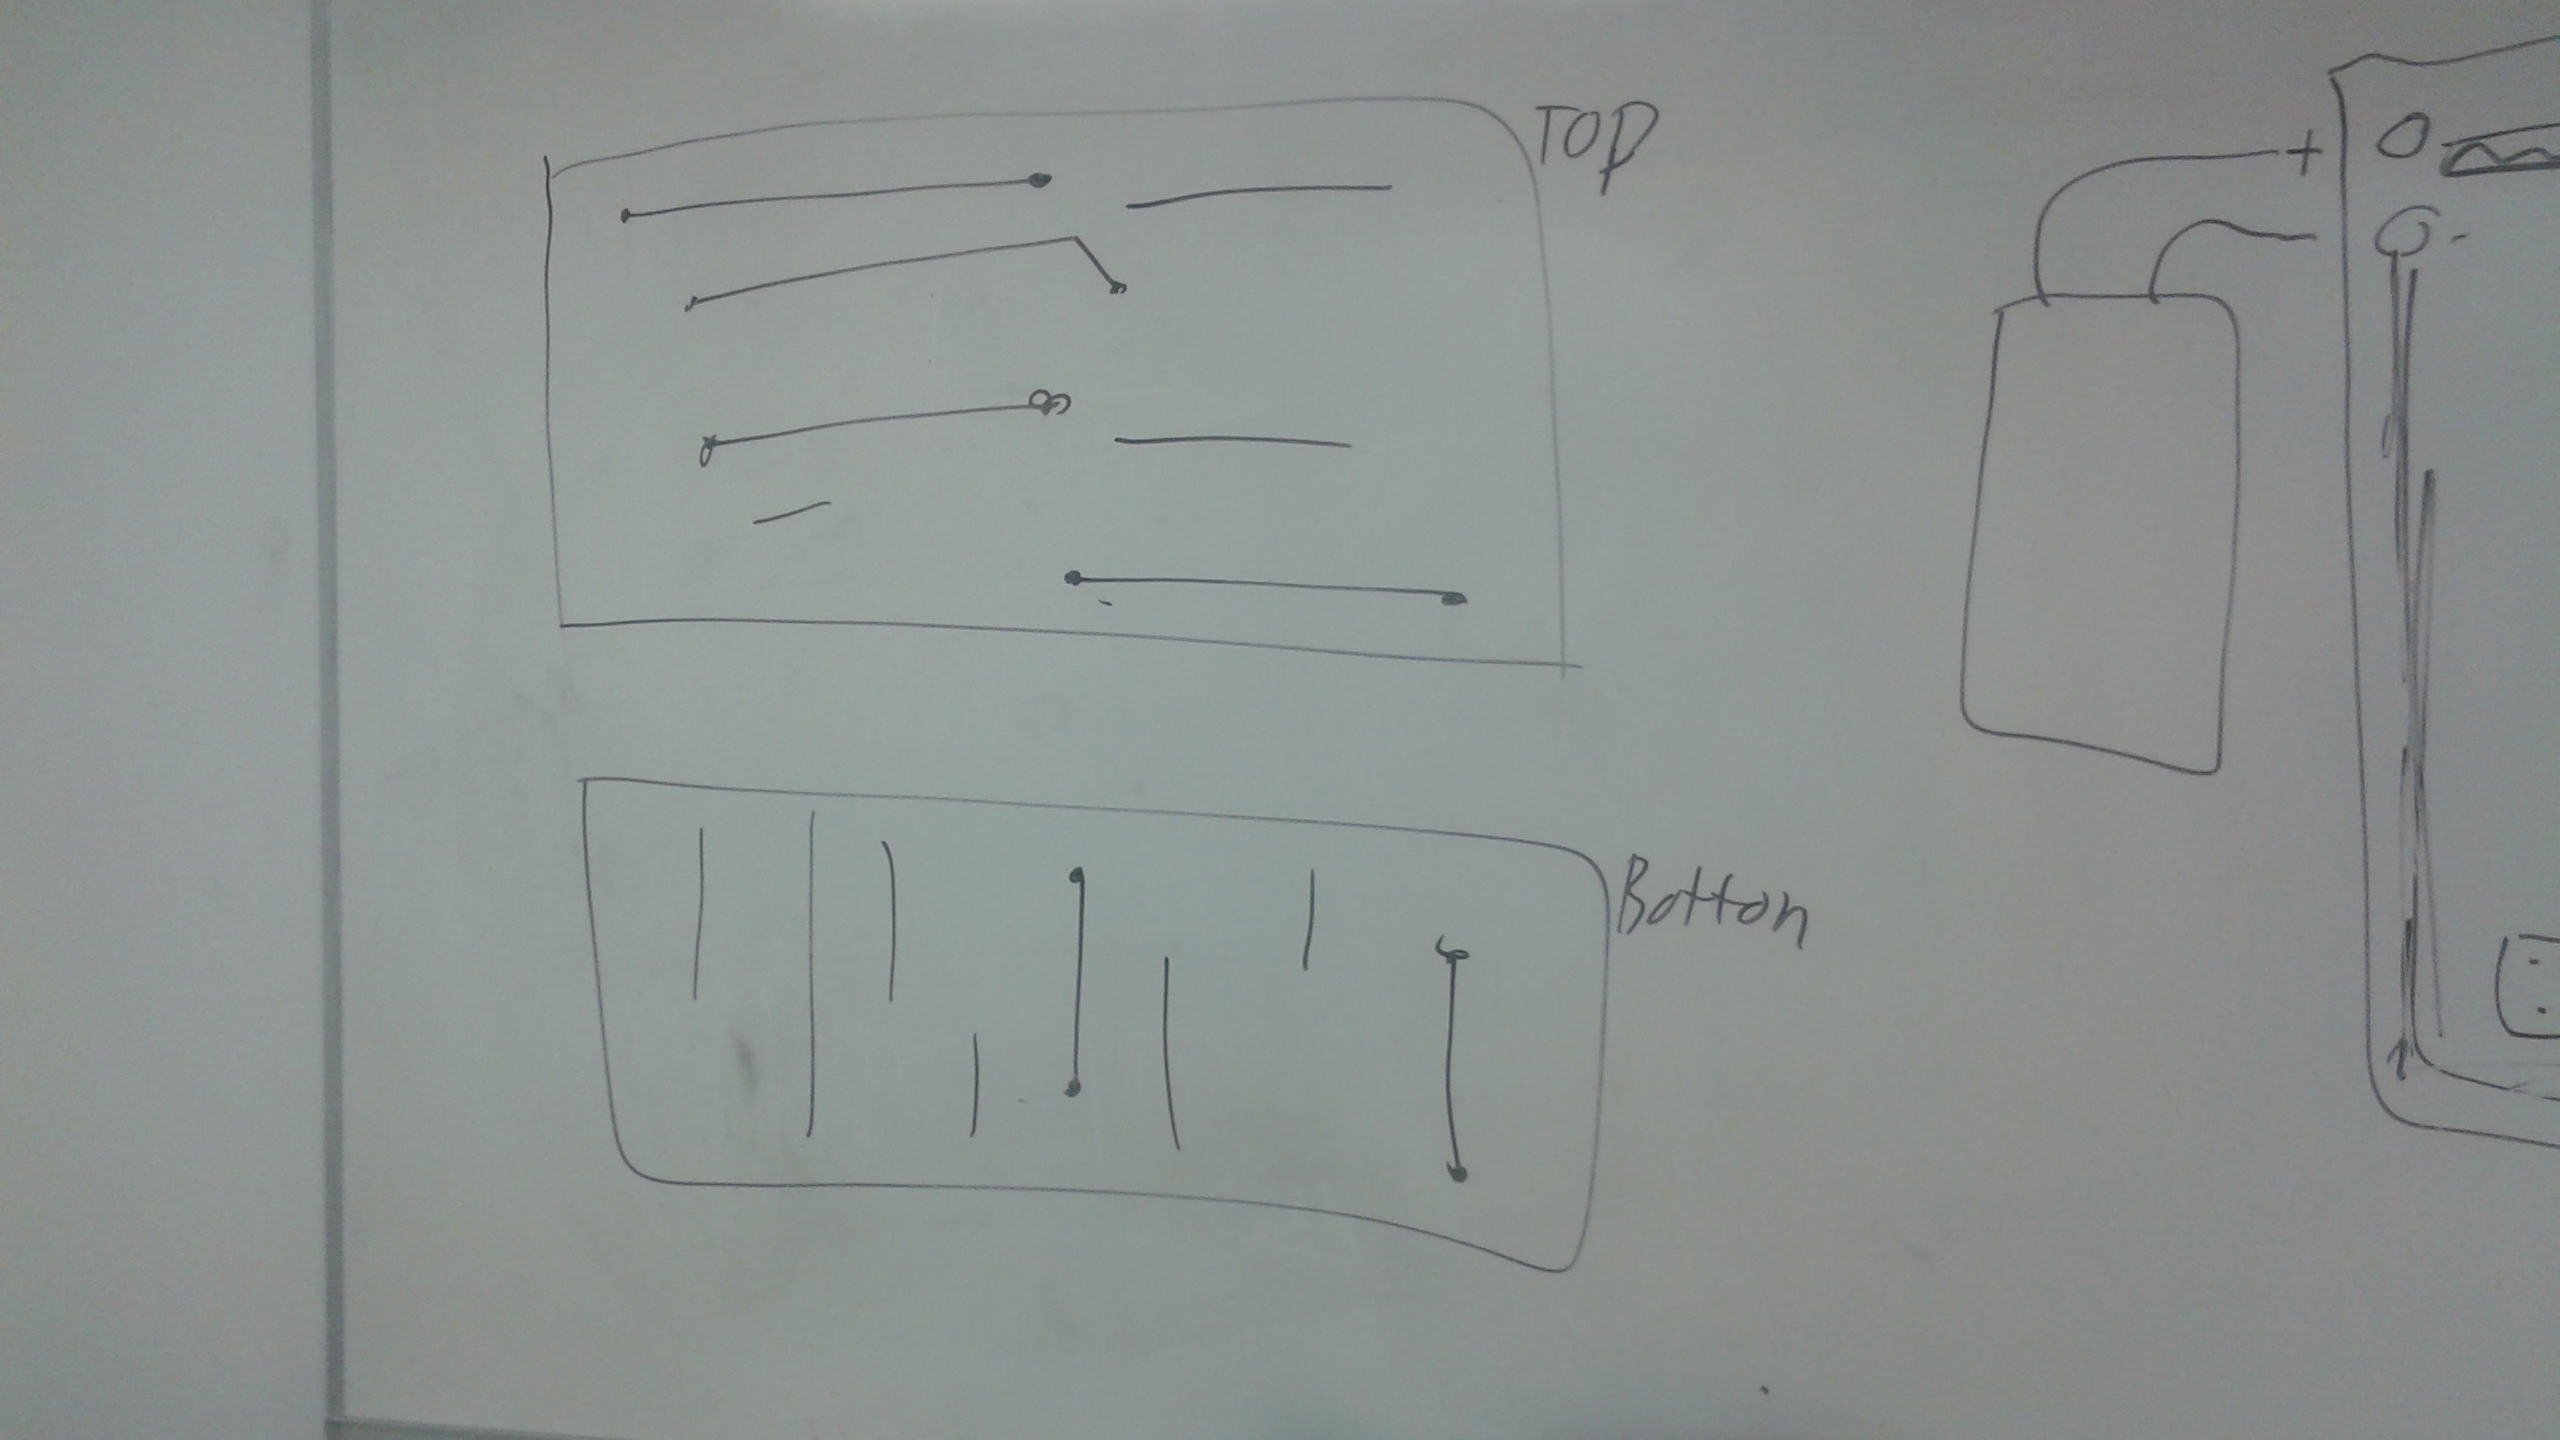 TOP
+
-
Botton